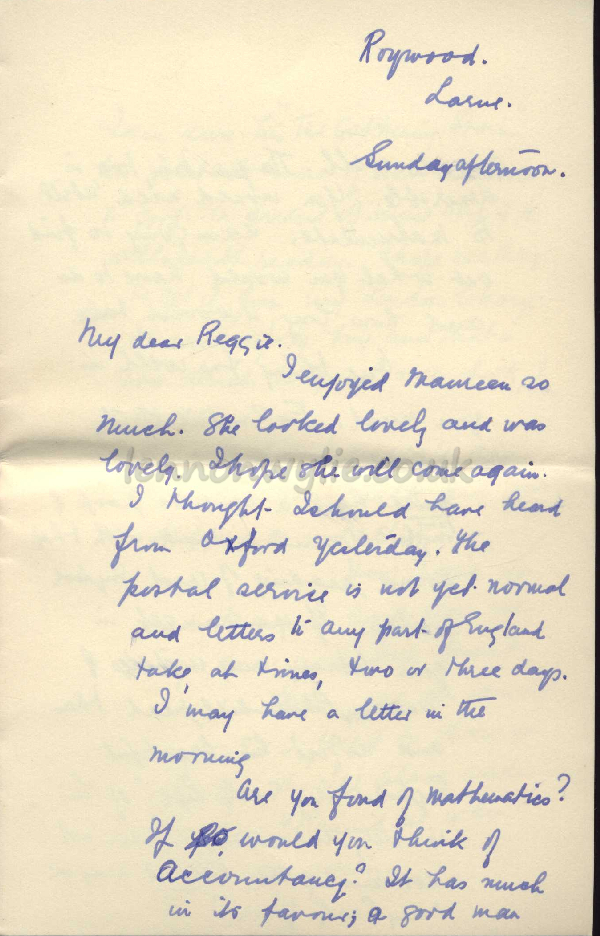 Roywood.
Larne.
Sunday afternoon.
My dear Reggie.
I enjoyed Maureen so
much. She looked lovely and was
lovely. I hope she will come again.
I thought I should have heard
from Oxford yesterday. The
postal service is not yet normal
and letters to any part of England
take, at times, two or three days.
I may have a letter in the
morning
Are you fond of mathematics?
If so, would you think of
Accountancy? It has much
in its favour; a good man